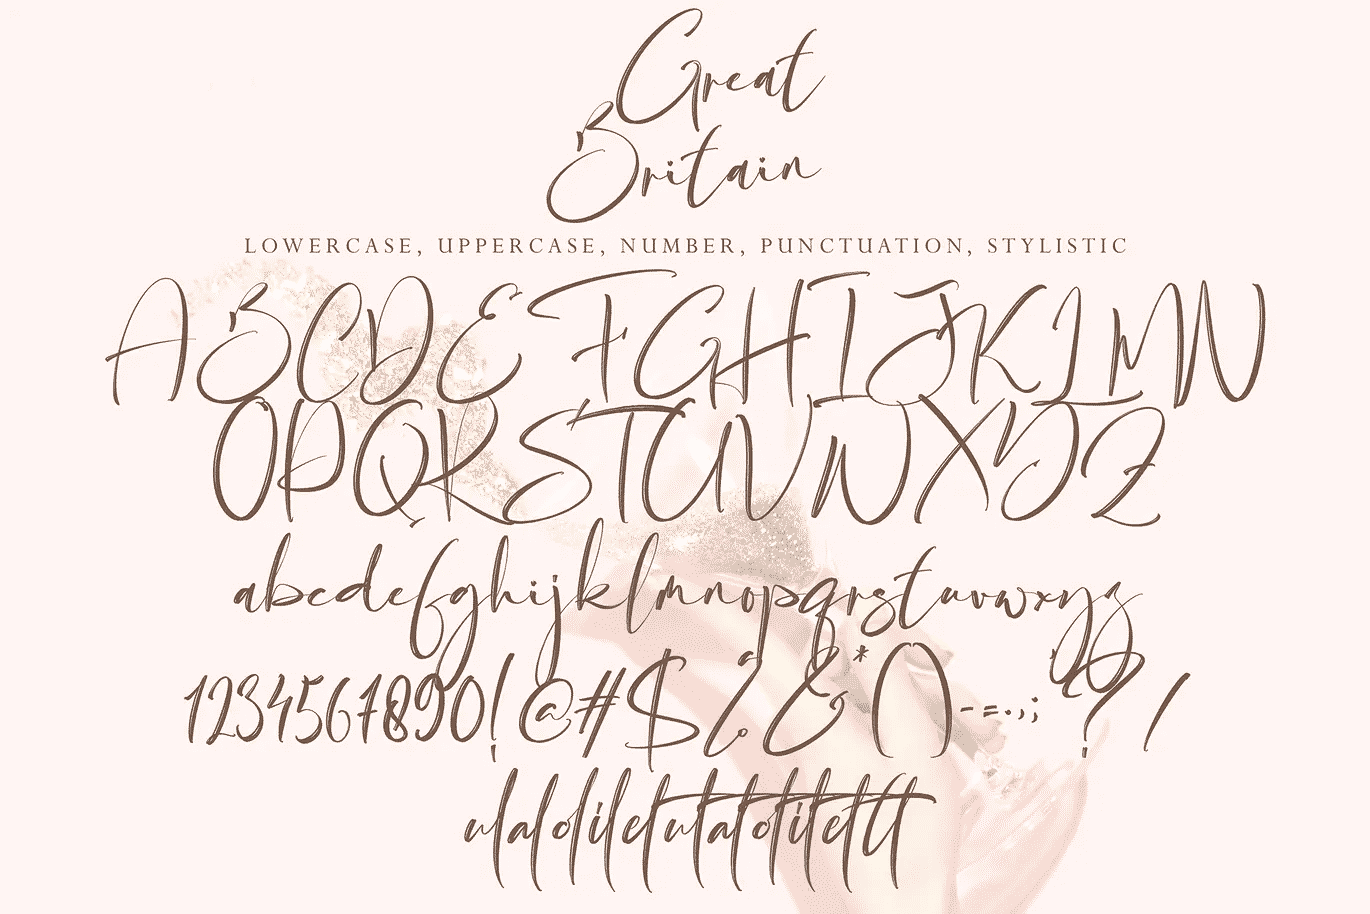 Great
Britain
LOWERCASE, UPPERCASE, NUMBER, PUNCTUATION, STYLISTIC
ABCDEFGHIJKLMN
OPQRSTUVWXYZ
abcdefghijklmnopqrstuvwxyz
1234567890!@#$%&*()-=.,;?/
ulalolilelutatotitettt